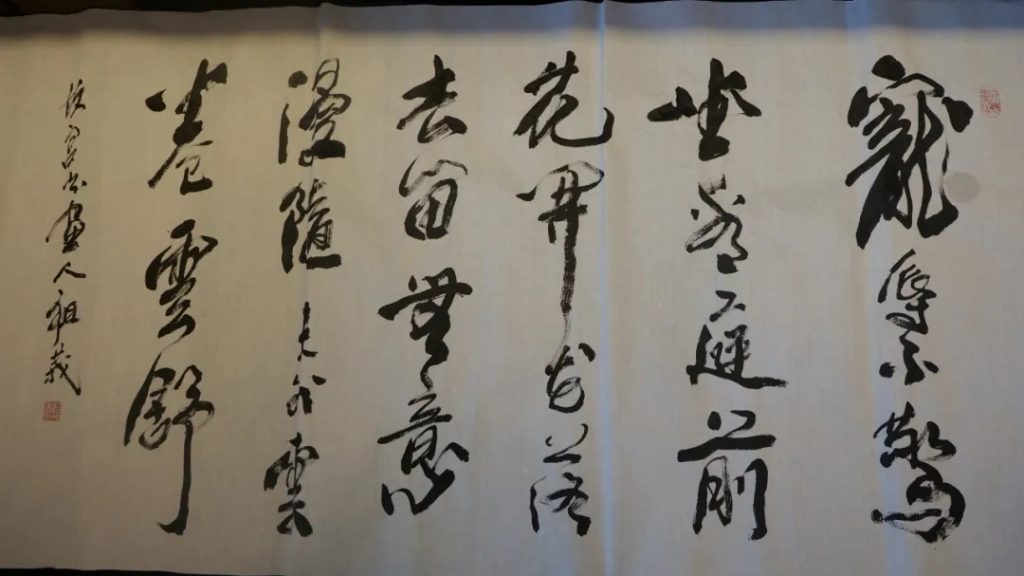 寵辱不驚
坐看庭前
花開花落
去留無意
漫隨天外雲
卷雲舒
書畫人祖義